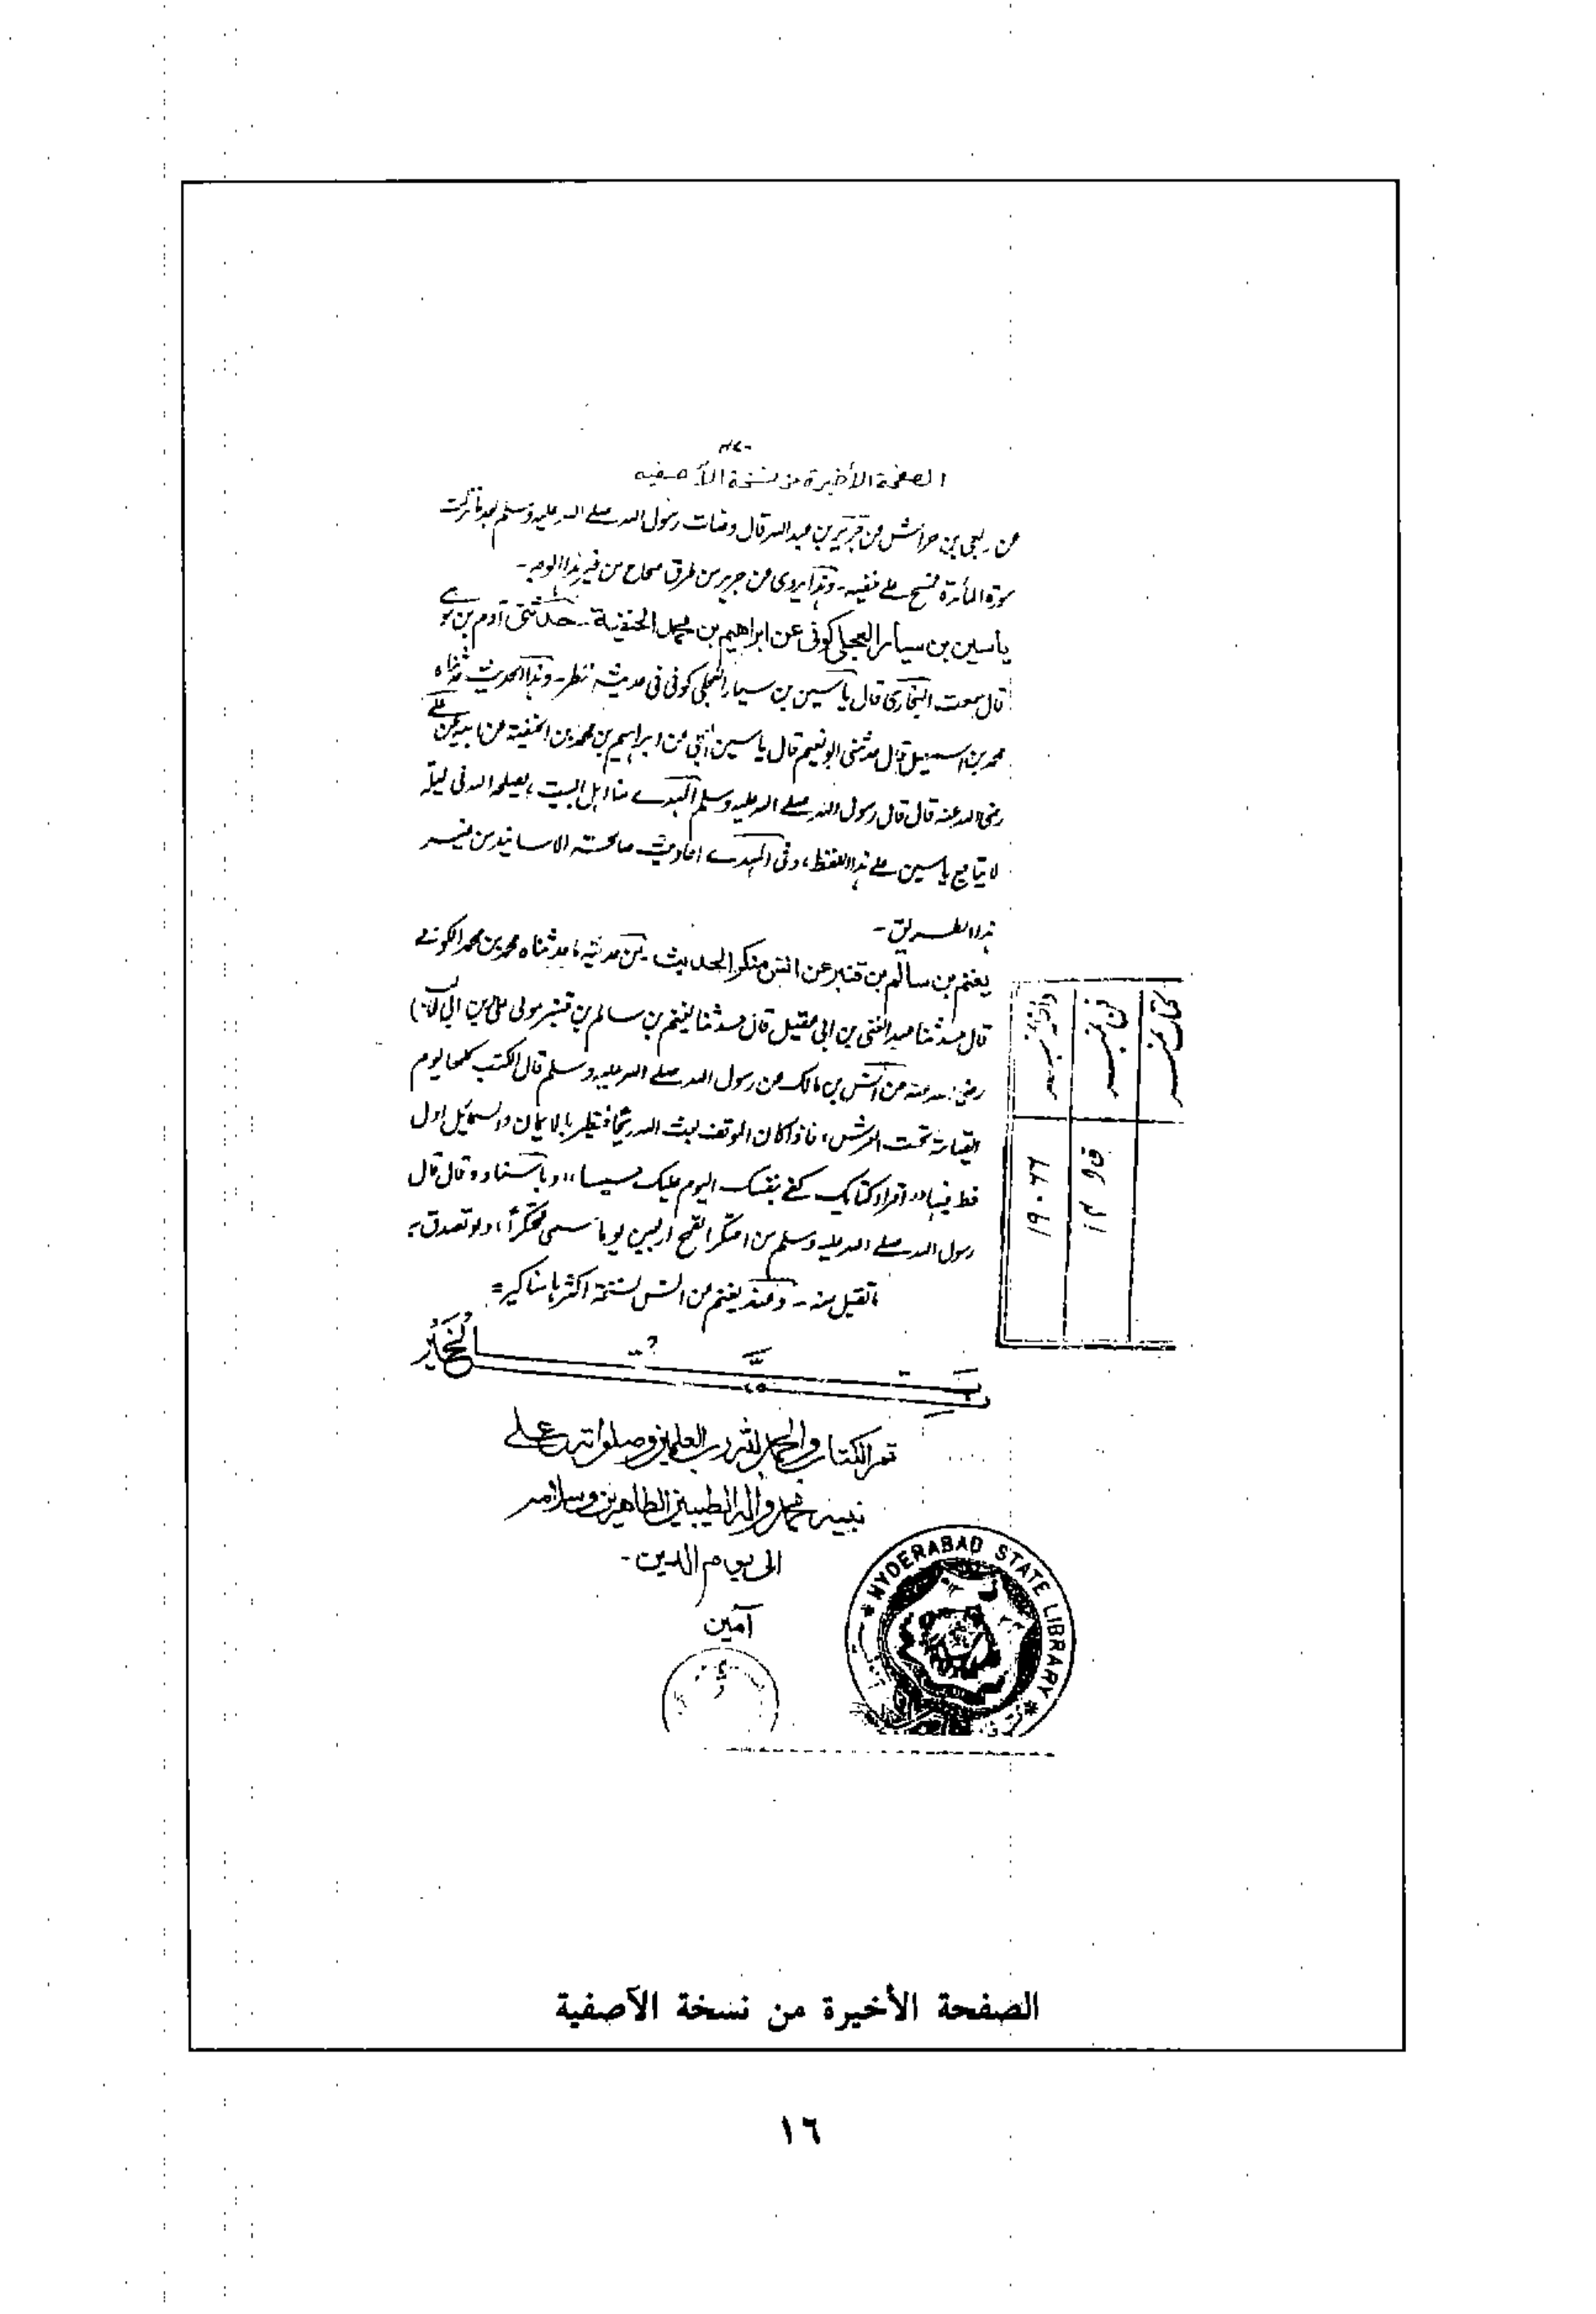 الصفحة الأخيرة من نسخة الآصفيه
عن ربعى بن حراش عن جرير بن عبد الله قال وضأت رسول الله صلے الله عليه وسلم بعد ما نزلت
سورة المائدة فمسح علے خفيه - وهذا يروى عن جرير من طرق صحاح من غير هذا الوجه -
ياسين بن سيار العجلى كوفى عن ابراهيم بن محمد الحنفية - حدثنى آدم بن موسے
قال سمعت البخارى قال ياسين بن سيار العجلى كوفى فى حديثه نظر - وهذا الحديث حدثناه
محمد بن اسمعيل قال حدثنى ابو نعيم قال ياسين العجلى عن ابراهيم بن محمد بن الحنفية عن ابيه عن علے
رضى الله عنه قال قال رسول الله صلے الله عليه وسلم المهدے منا اهل البيت يصلحه الله فى ليلة
لا يتابع ياسين علے هذا اللفظ، وفى المهدے احاديث صالحة الاسانيد من غير
هذا الطريق -
يغنم بن سالم بن قنبر عن انس منكر الحديث - من حديثه ما حدثناه محمد بن محمد الكوفے
قال حدثنا عبد الغنى بن ابى عقيل قال حدثنا يغنم بن سالم بن قنبر مولى على بن ابى طالب
رضى الله عنه عن انس بن مالك عن رسول الله صلے الله عليه وسلم قال الكتب كلها يوم
القيامة تحت العرش، فاذا كان الموقف بعث الله ريحا فتطير بالايمان والشمائل اول
خط فيها "اقرأ كتابك كفے بنفسك اليوم عليك حسيبا" وباسناده قال قال
رسول الله صلے الله عليه وسلم من احتكر القمح اربعين يوما سمى محتكرا، ولو تصدق به
لم تقبل منه - وعند يغنم عن انس نسخة اكثرها مناكير =
تمت بالخير
تم الكتاب والحمد لله رب العلمين وصلواته على
نبيه محمد وآله الطيبين الطاهرين وسلامه
الى يوم الدين -
آمين
كتاب نمبر
فن نمبر
داخله نمبر
١٩٠٦٦
HYDERABAD STATE LIBRARY
الصفحة الأخيرة من نسخة الآصفية
١٦